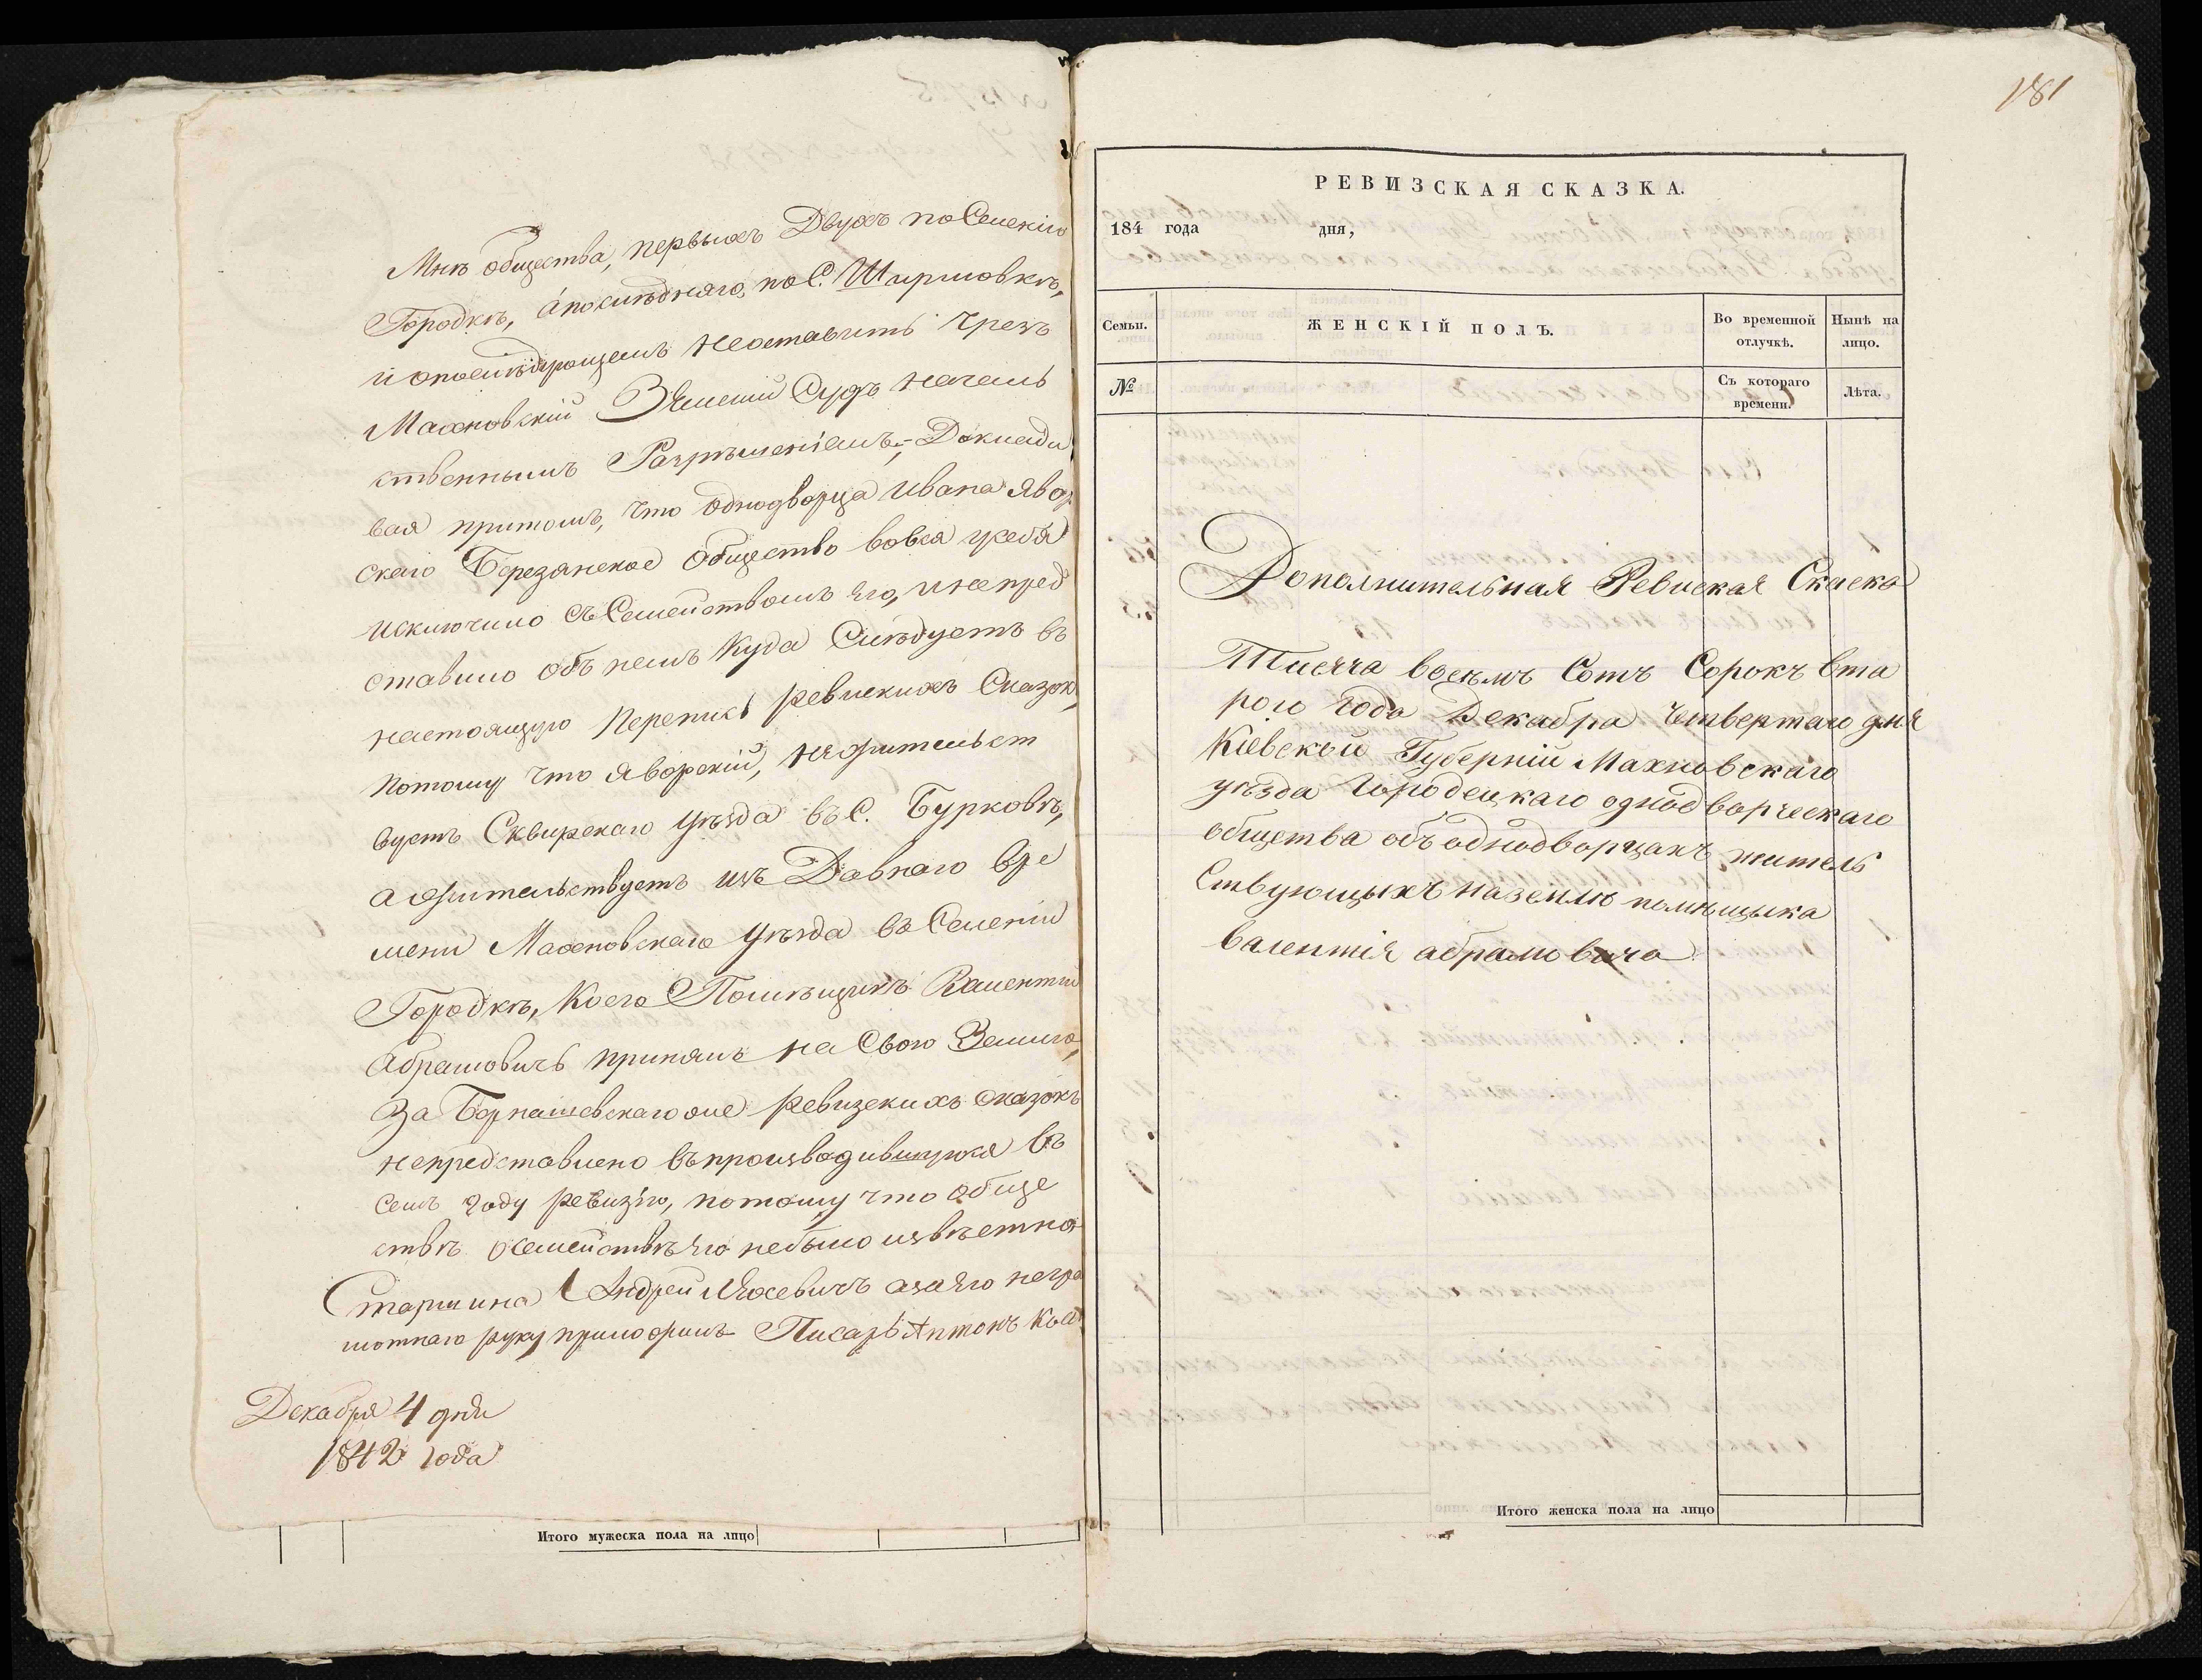 Мнѣ общества, первыхъ Двухъ по Селенію
Городкѣ, а послѣдняго, по С. Ширмовкѣ,
и о послѣдующемъ неоставить чрезъ
Махновскій Земскій Судъ началь
ственнымъ Разрѣшеніемъ,- Доклады
вая притомъ, что однодворца Ивана Явор
скаго Березанское Общество вовся усебя
исключило съ Семействомъ его, и непред
ставило объ немъ Куда Слѣдуетъ въ
настоящую Перепись ревискихъ Сказокъ,
потому что Яворскій, нежительст
вуетъ Сквирскаго уѣзда въ С. Бурковкѣ,
а жительствуетъ изъ Давнаго Вре
мени Махновскаго уѣзда въ Селеніи
Городкѣ, Коего Помѣщикъ Валентій
Абрамовичъ принялъ на Свою Землю,
За Бернашевскаго же ревизскихъ сказокъ
непредставлено въ производившуюся въ
семъ году ревизію, потому что обще
ствѣ о семействѣ его небыло извѣстно
Старшина Андрей а за его негра
мотнаго руку приложилъ Писарь Антонъ
Декабря 4 дня
1842 года
Итого мужеска пола на лицо
181
РЕВИЗСКАЯ СКАЗКА.
184 года дня,
Семьи. ЖЕНСКІЙ ПОЛЪ. Во временной отлучкѣ. Нынѣ на лицо.
№ Съ котораго времени. Лѣта.
Дополнительная Ревиская Скаска
Тисяча восемъ Сотъ Сорокъ вта
рого года Декабра Четвертаго дня
Кіевской Губерніи Махновскаго
уѣзда Городецкаго однодворческаго
общества объ однодворцахъ житель
Ствующыхъ на землѣ помѣщыка
валентія абрамовича
Итого женска пола на лицо